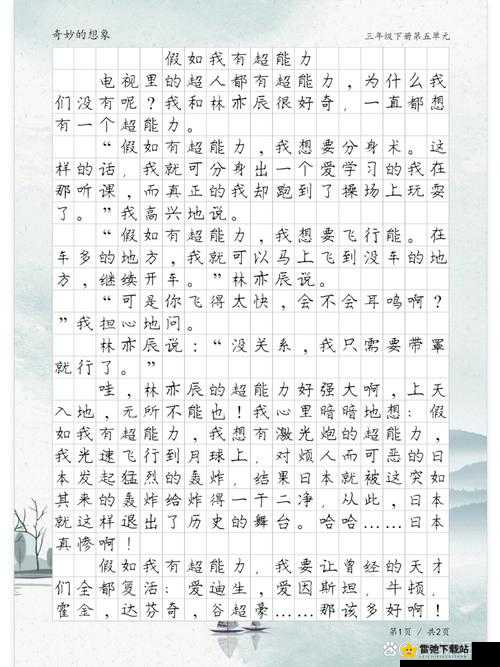 奇妙的想象
三年级下册第五单元
假如我有超能力
电视里的超人都有超能力，为什么我
们没有呢？我和林亦辰很好奇，一直都想
有一个超能力。
“假如有超能力，我想要分身术。这
样的话，我就可分身出一个爱学习的我在
那听课，而真正的我却跑到了操场上玩耍
了。”我高兴地说。
“假如有超能力，我想要飞行能。在
车多的地方，我就可以马上飞到没车的地
方，继续开车。”林亦辰说。
“可是你飞得太快，会不会耳鸣啊？
”我担心地问。
林亦辰说：“没关系，我只需要带罩
就行了。”
哇，林亦辰的超能力好强大啊，上天
入地，无所不能也！我心里暗暗地想：假
如我有超能力，我想有激光炮的超能力，
我光速飞行到月球上，对烦人而可恶的日
本发起猛烈的轰炸，结果日本就被这突如
其来的轰炸给炸得一干二净，从此，日本
就这样退出了历史的舞台。哈哈……日本
真惨啊！
假如我有超能力，我要让曾经的天才
们全都复活：爱迪生，爱因斯坦，牛顿，
霍金，达芬奇，谷超豪……那该多好啊！
第1页 / 共2页
雷弛下载站